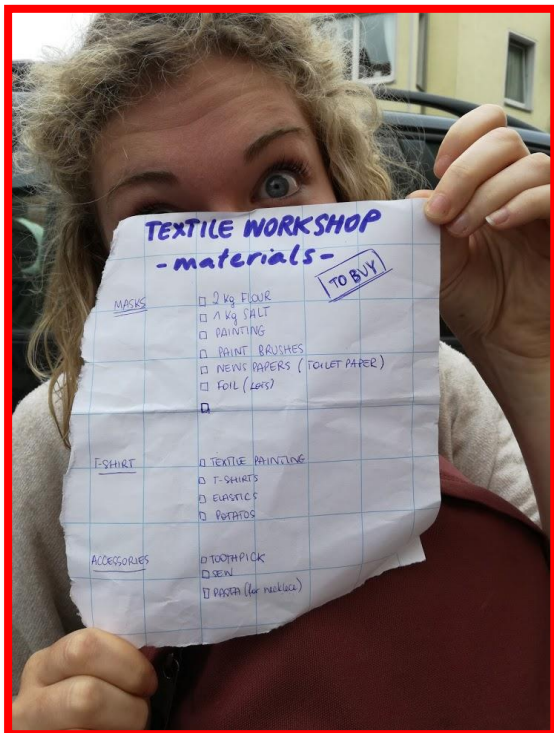 TEXTILE WORKSHOP
- materials -
TO BUY
MASKS
2 kg FLOUR
1 kg SALT
PAINTING
PAINT BRUSHES
NEWS PAPERS (TOILET PAPER)
FOIL (LOTS)
T-SHIRT
TEXTILE PAINTING
T-SHIRTS
ELASTICS
POTATOS
ACCESSORIES
TOOTHPICK
SEW
PASTA (for necklace)